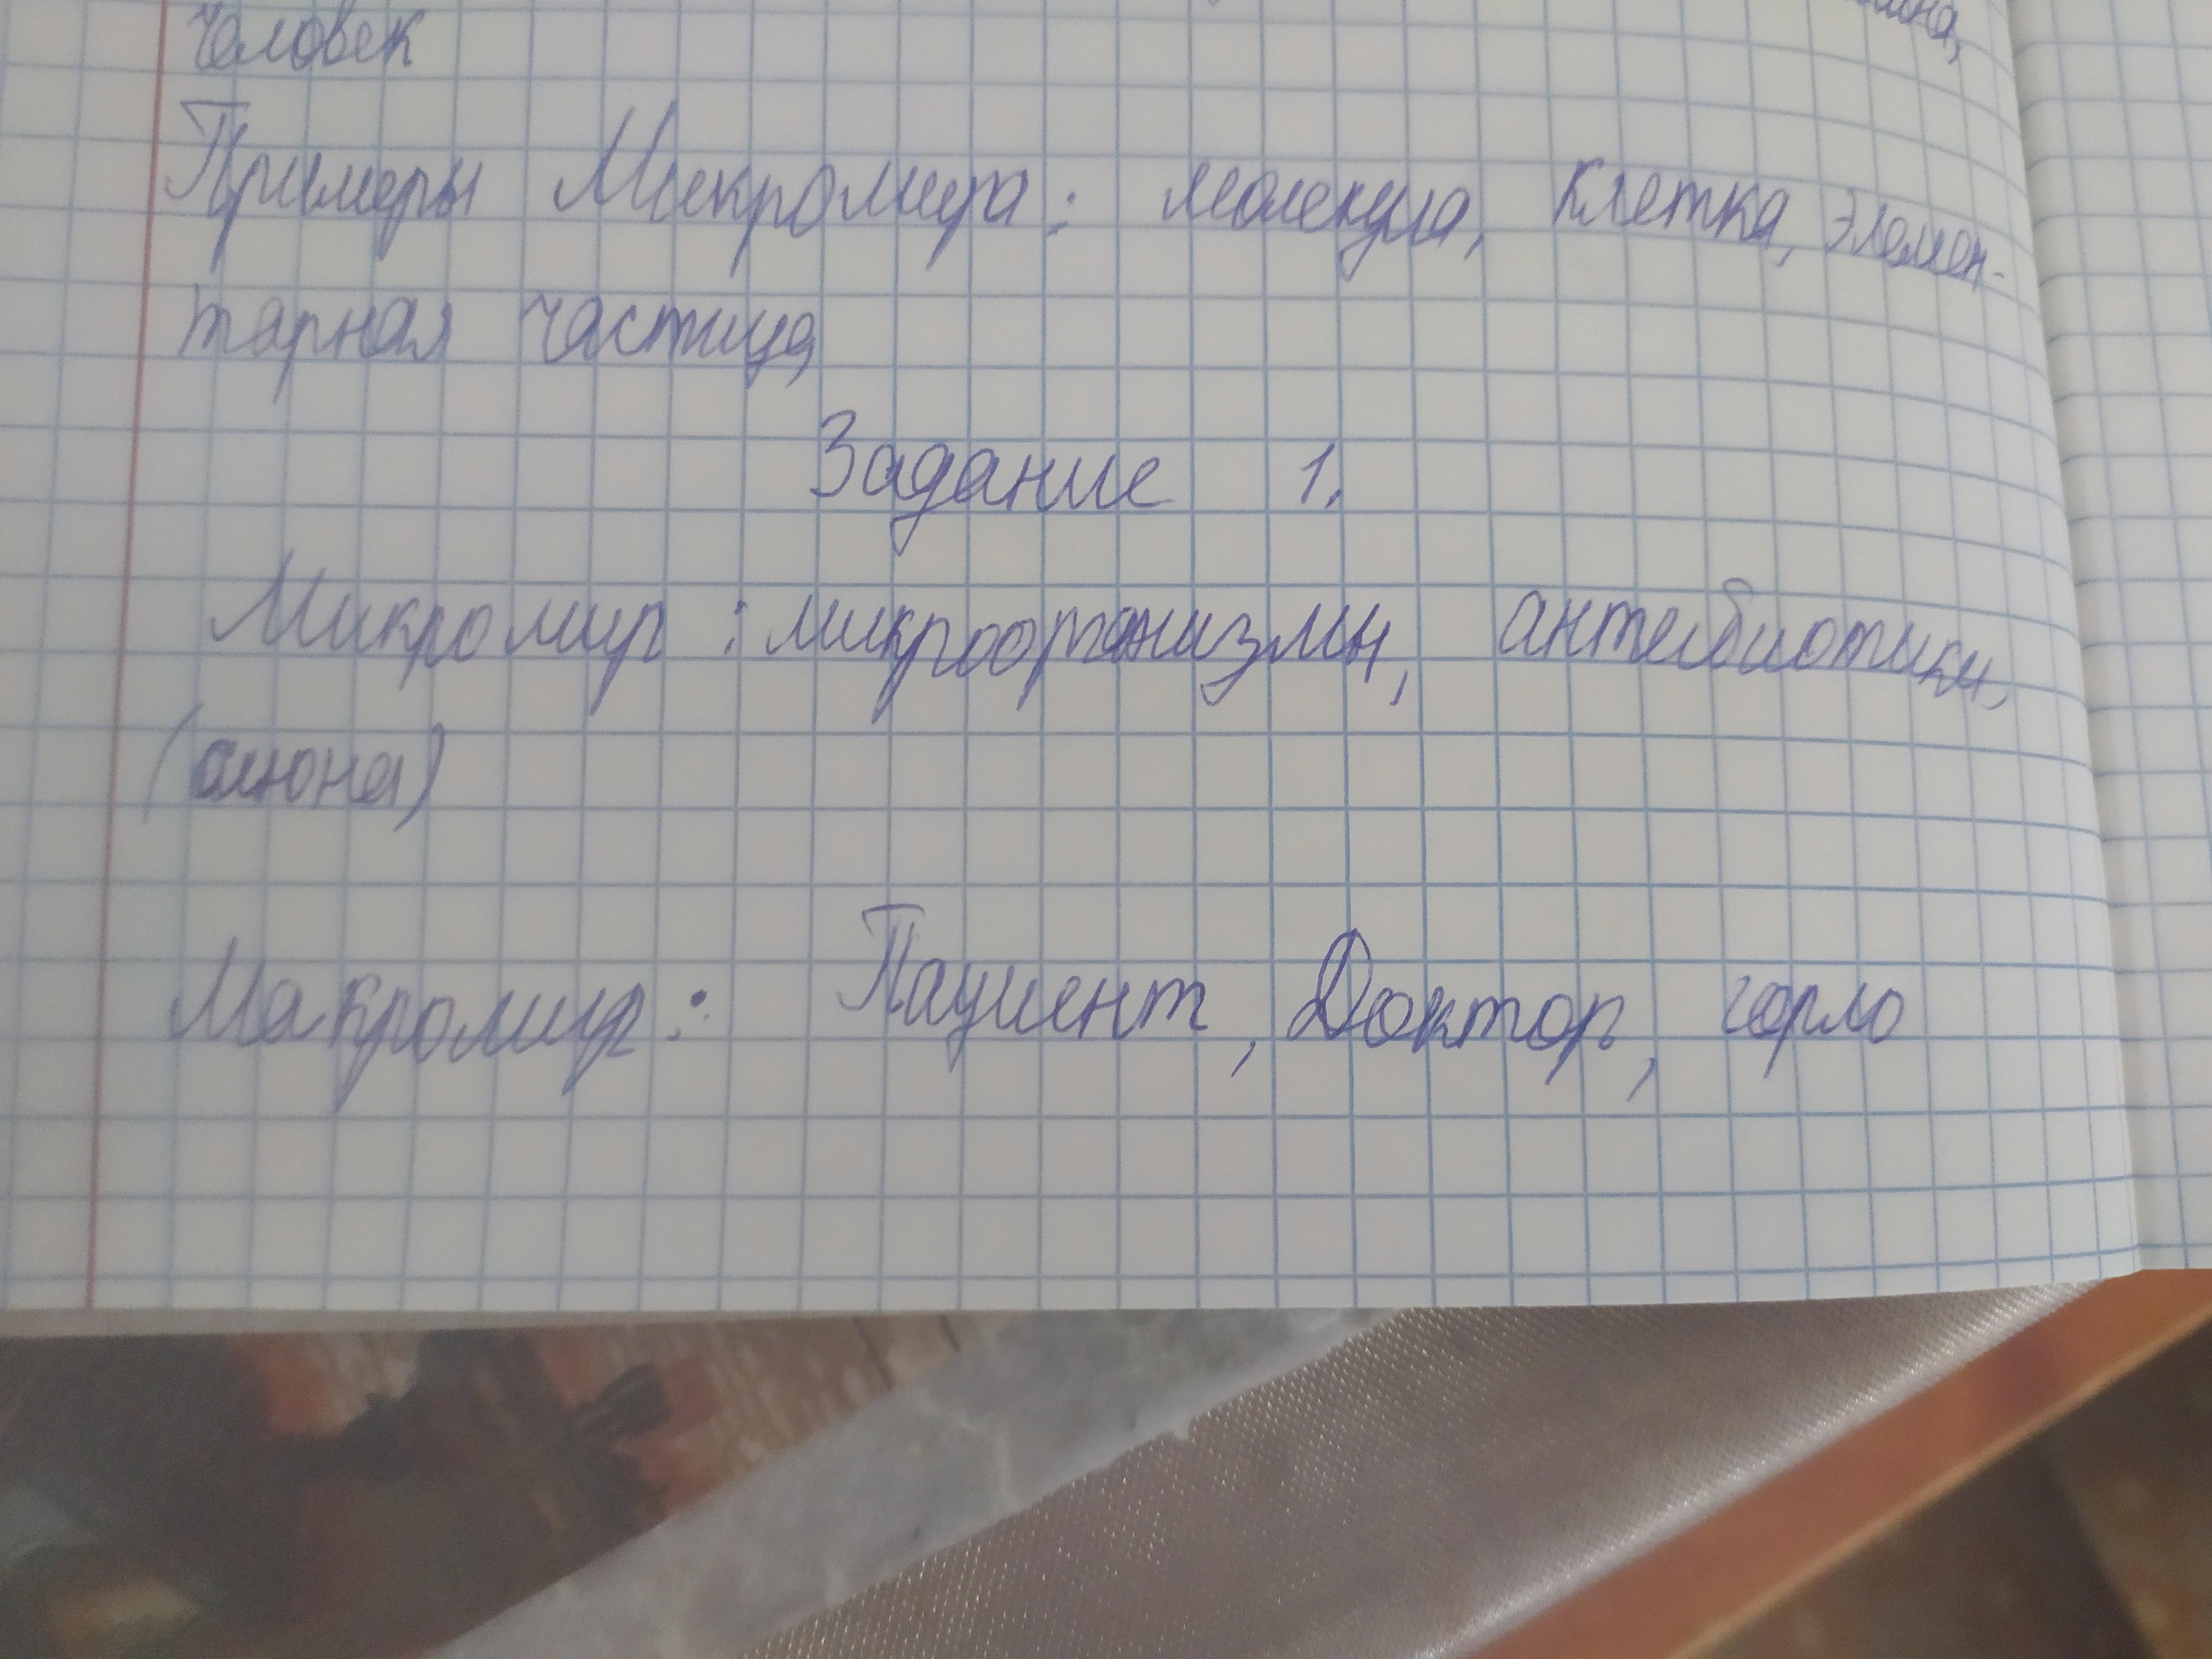 человек
Примеры Микромира: молекула, клетка, элемен-
тарная частица
Задание 1.
Микромир: микроорганизмы, антебиотики,
(слюна)
Макромир: Пациент, Доктор, горло